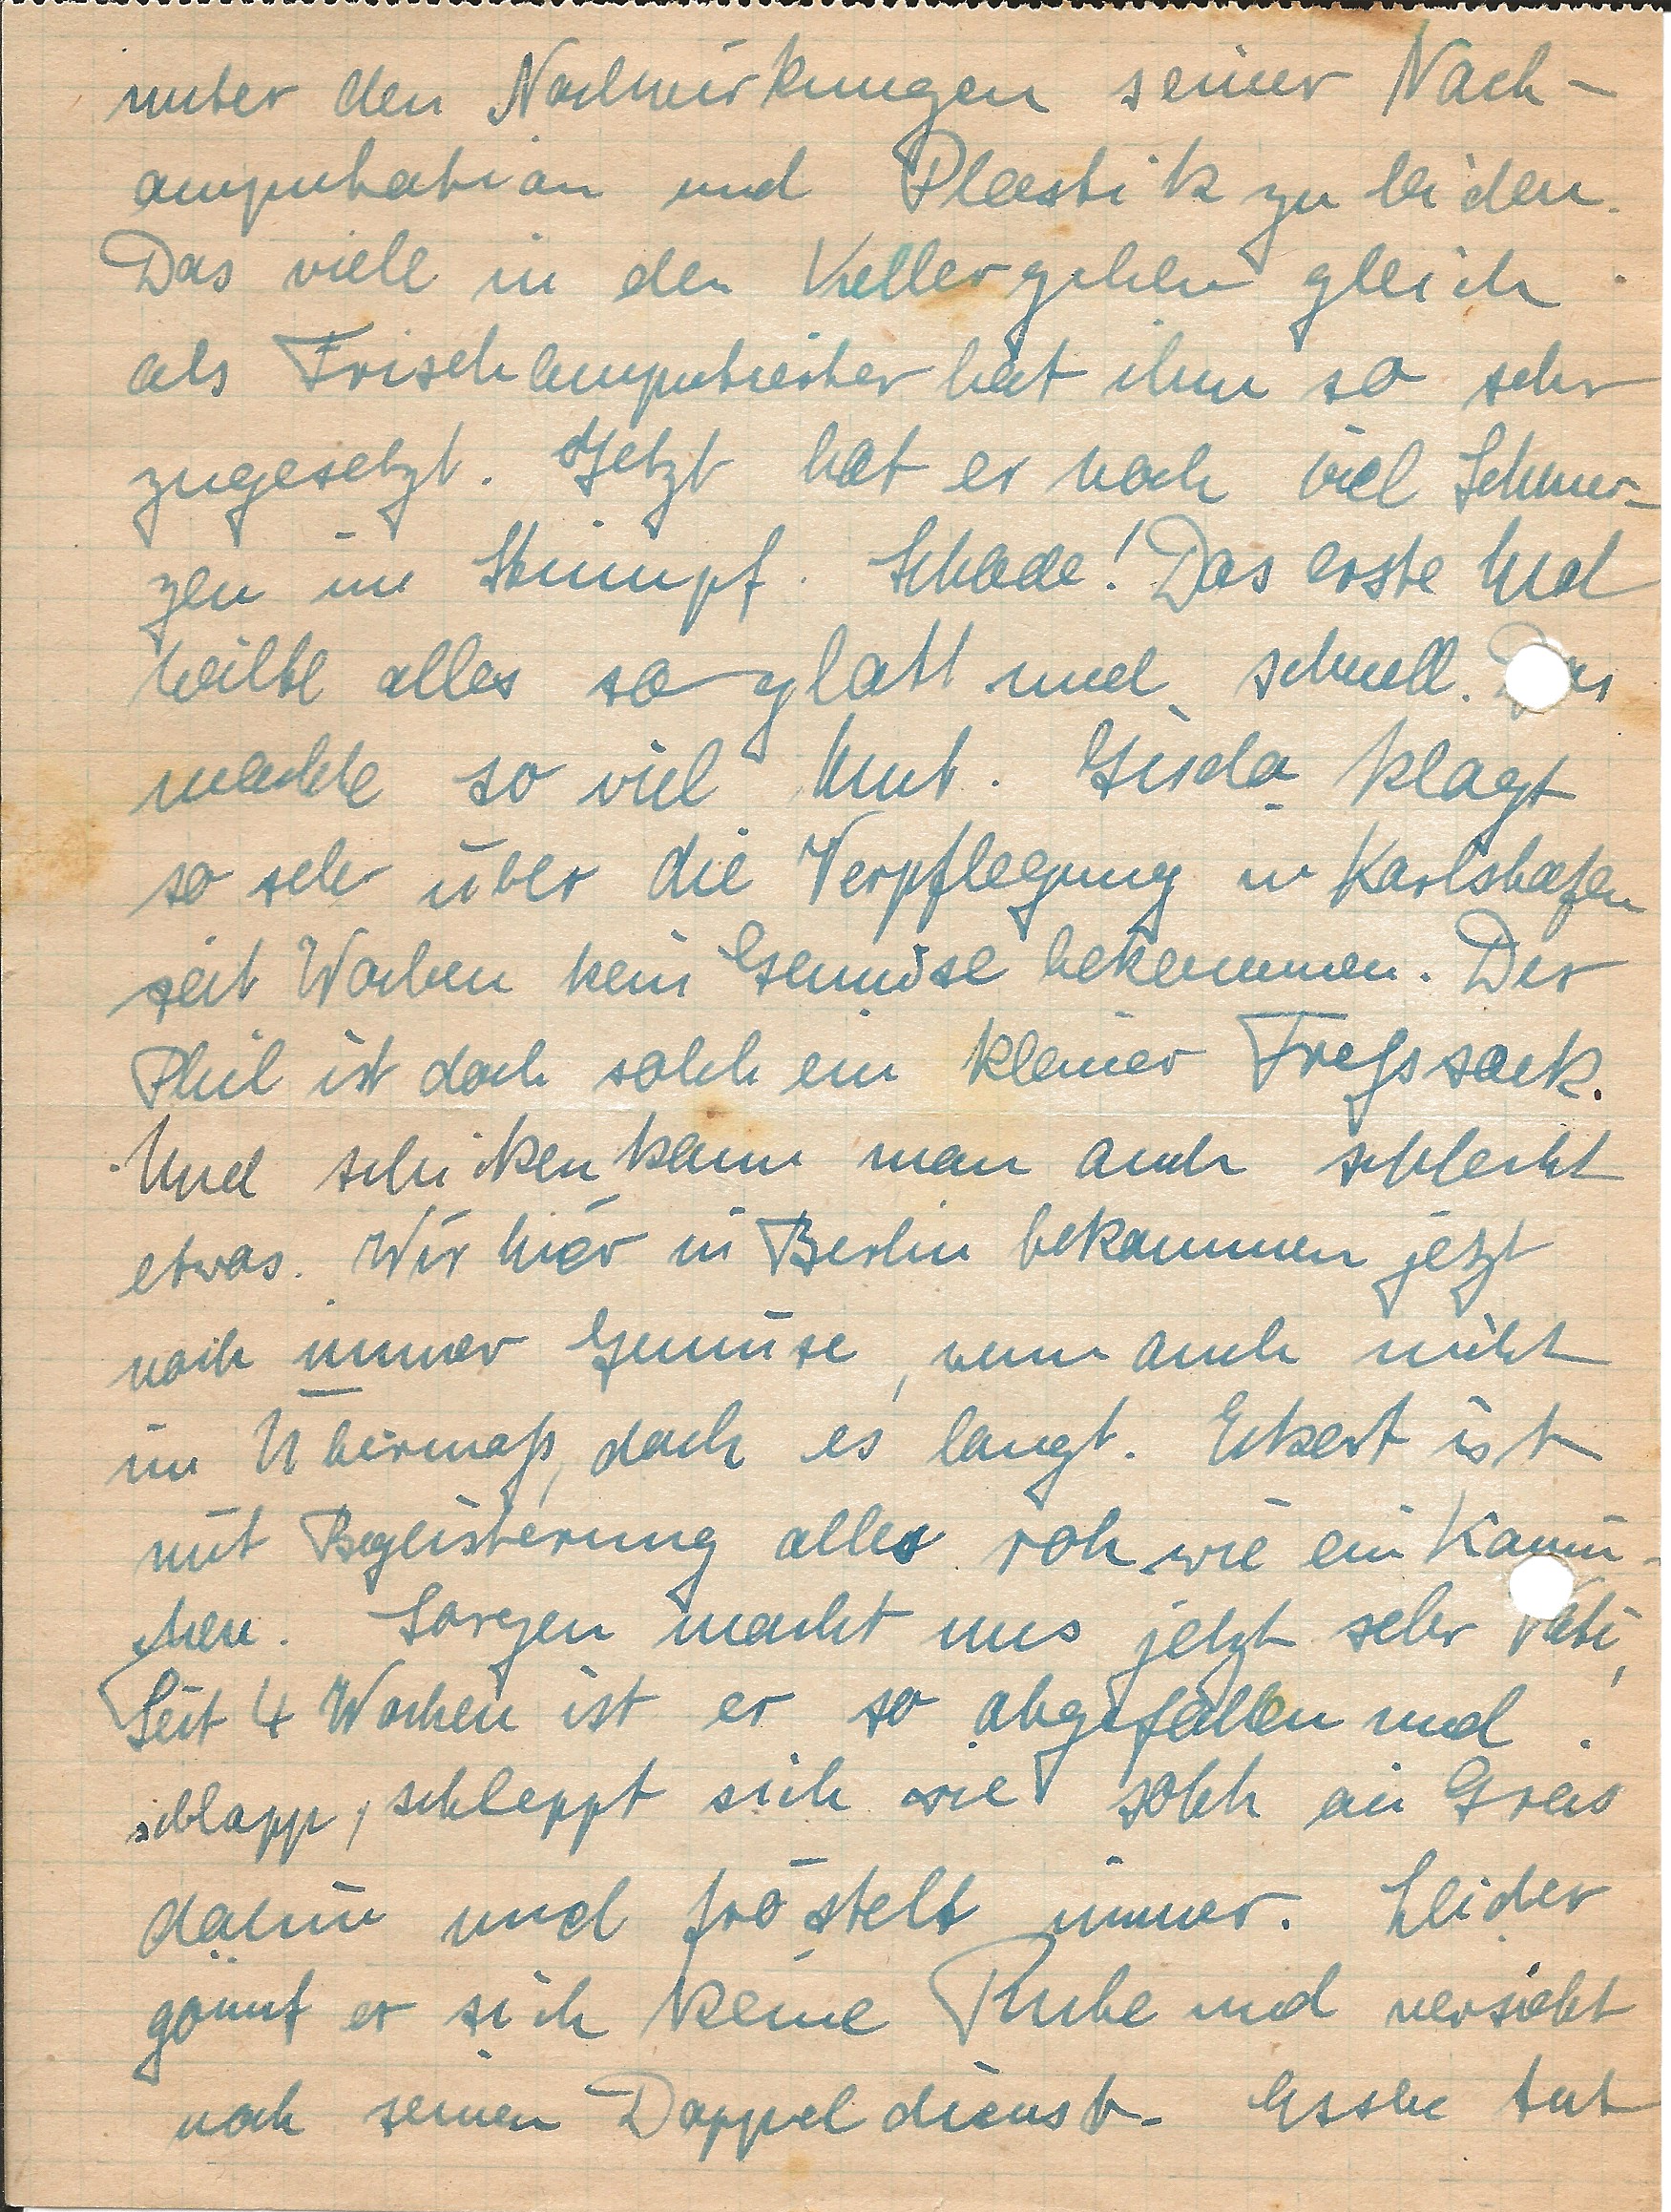 unter den Nachwirkungen seiner Nach-
amputation und Plastik zu leiden.
Das viele in den Keller gehen gleich
als Frischamputierter hat ihm so sehr
zugesetzt. Jetzt hat er noch viel Schmer-
zen im Stumpf. Schade! Das erste Mal
heilte alles so glatt und schnell. Das
machte so viel Mut. Gisela klagt
so sehr über die Verpflegung in Karlshafen
seit Wochen kein Gemüse bekommen. Der
Phil ist doch solch ein kleiner Freßsack.
Und schicken kann man auch schlecht
etwas. Wir hier in Berlin bekommen jetzt
noch immer Gemüse, wenn auch nicht
im Übermaß, doch es langt. Eckert ist
mit Begeisterung alles roh wie ein Kanin-
chen. Sorgen macht uns jetzt sehr Vati,
Seit 4 Wochen ist er so abgefallen und
schlapp, schleppt sich wie solch ein Greis
dahin und fröstelt immer. Leider
gönnt er sich keine Ruhe und versieht
noch seinen Doppeldienst. Essen tut